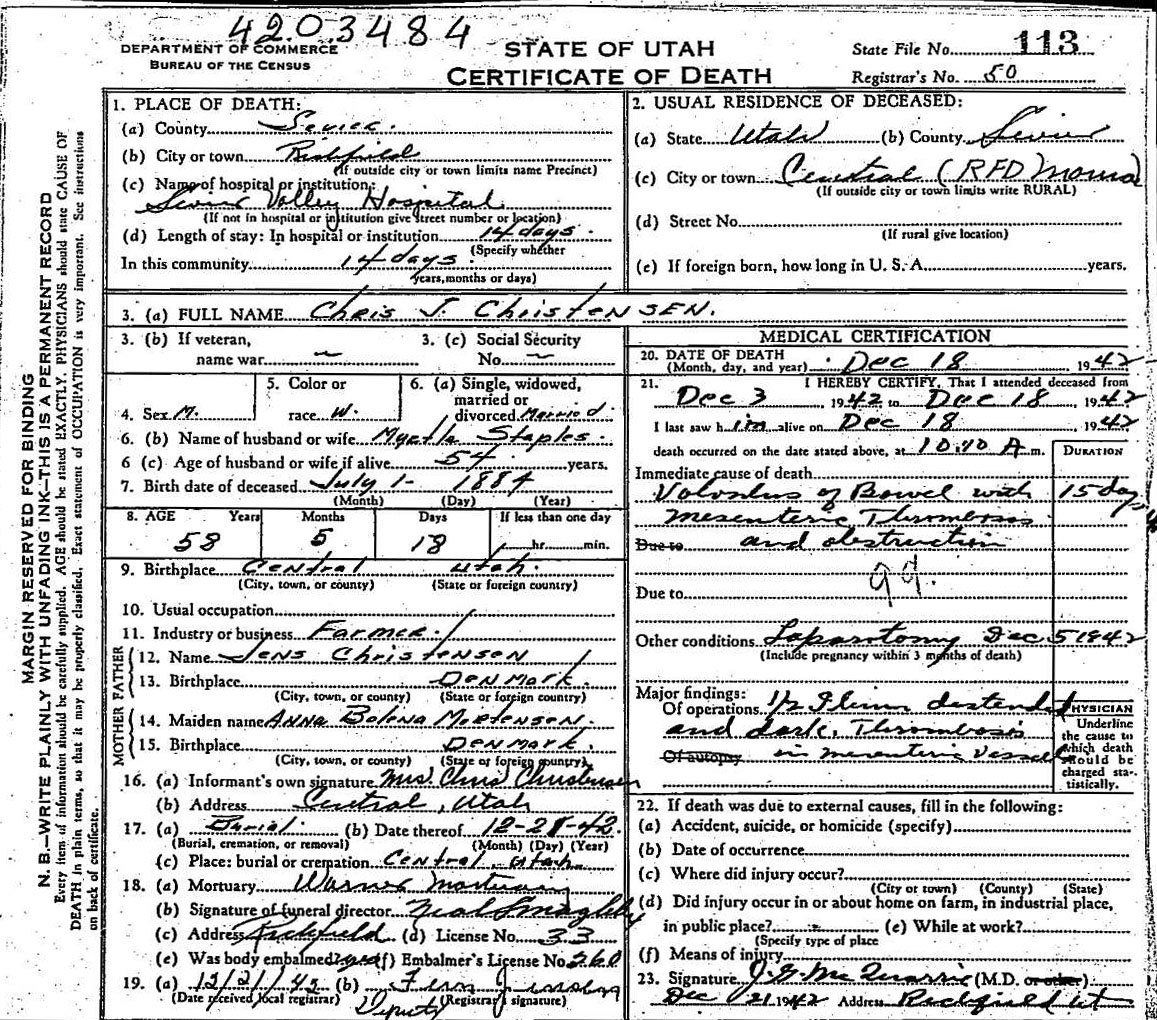 4203484
DEPARTMENT OF COMMERCE
BUREAU OF THE CENSUS
STATE OF UTAH
CERTIFICATE OF DEATH
State File No. 113
Registrar's No. 50
MARGIN RESERVED FOR BINDING
N. B.—WRITE PLAINLY WITH UNFADING INK—THIS IS A PERMANENT RECORD
Every item of information should be carefully supplied. AGE should be stated EXACTLY. PHYSICIANS should state CAUSE OF
DEATH in plain terms, so that it may be properly classified. Exact statement of OCCUPATION is very important. See instructions
on back of certificate.
1. PLACE OF DEATH:
(a) County Sevier
(b) City or town Richfield
(If outside city or town limits name Precinct)
(c) Name of hospital or institution:
Sevier Valley Hospital
(If not in hospital or institution give street number or location)
(d) Length of stay: In hospital or institution 14 days
(Specify whether
In this community 14 days
years, months or days)
2. USUAL RESIDENCE OF DECEASED:
(a) State Utah (b) County Sevier
(c) City or town Central (RFD
(If outside city or town limits write RURAL)
(d) Street No.
(If rural give location)
(e) If foreign born, how long in U. S. A. years.
3. (a) FULL NAME Chris J. Christensen.
3. (b) If veteran,
name war —
3. (c) Social Security
No. —
4. Sex M.
5. Color or
race W.
6. (a) Single, widowed,
married or
divorced Married.
6. (b) Name of husband or wife Myrtle Staples.
6 (c) Age of husband or wife if alive 54 years.
7. Birth date of deceased July 1- 1884
(Month) (Day) (Year)
8. AGE Years Months Days If less than one day
58 5 18 hr. min.
9. Birthplace Central Utah.
(City, town, or county) (State or foreign country)
10. Usual occupation
11. Industry or business Farmer
FATHER
12. Name Jens Christensen
13. Birthplace Denmark.
(City, town, or county) (State or foreign country)
MOTHER
14. Maiden name Anna Bolena Mortensen.
15. Birthplace Denmark.
(City, town, or county) (State or foreign country)
16. (a) Informant's own signature Mrs. Chris Christensen
(b) Address Central, Utah
17. (a) Burial. (b) Date thereof 12-21-42.
(Burial, cremation, or removal) (Month) (Day) (Year)
(c) Place: burial or cremation Central, Utah.
18. (a) Mortuary Warner Mortuary
(b) Signature of funeral director Neal
(c) Address Richfield (d) License No. 33
(e) Was body embalmed? yes (f) Embalmer's License No. 260
19. (a) 12/21/42 (b) Fern
(Date received local registrar) (Registrar's signature)
Deputy
MEDICAL CERTIFICATION
20. DATE OF DEATH
(Month, day, and year) Dec 18 1942
21. I HEREBY CERTIFY, That I attended deceased from
Dec 3, 1942 to Dec 18, 1942
I last saw him alive on Dec 18, 1942
death occurred on the date stated above, at 10:10 A m.
DURATION
Immediate cause of death
Volvulus of Bowel with 15 days
Mesenteric Thrombosis
Due to and obstruction
99.
Due to
Other conditions Laparotomy Dec 5 1942
(Include pregnancy within 3 months of death)
Major findings:
Of operations 1/2 Ileum distended
and dark. Thrombosis
Of autopsy in mesenteric vessels
PHYSICIAN
Underline
the cause to
which death
should be
charged sta-
tistically.
22. If death was due to external causes, fill in the following:
(a) Accident, suicide, or homicide (specify)
(b) Date of occurrence
(c) Where did injury occur?
(City or town) (County) (State)
(d) Did injury occur in or about home on farm, in industrial place,
in public place? (e) While at work?
(Specify type of place
(f) Means of injury
23. Signature J. G. McQuarrie (M.D. or other)
Dec 21 1942 Address Richfield Ut